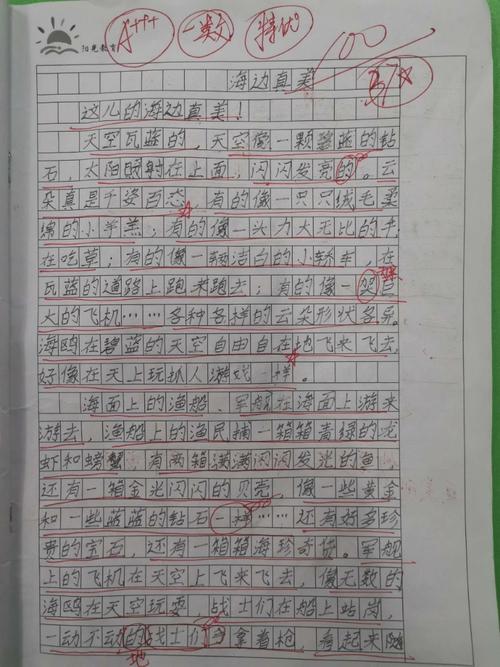 A+++ 一类文 特优 100
阳光教育
海边真美
这儿的海边真美!
天空瓦蓝的,天空像一颗碧蓝的钻
石,太阳照射在上面,闪闪发亮的。云
朵真是千姿百态,有的像一只只绒毛柔
绵的小羊羔;有的像一头力大无比的牛
在吃草;有的像一辆洁白的小轿车,在
瓦蓝的道路上跑来跑去;有的像一架巨
大的飞机……各种各样的云朵形状各异。
海鸥在碧蓝的天空自由自在地飞来飞去,
好像在天上玩抓人游戏一样。
海面上的渔船、军舰在海面上游来
游去,渔船上的渔民捕一箱箱青绿的龙
虾和螃蟹,有两箱满满闪闪发光的鱼,
还有一箱金光闪闪的贝壳,像一些黄金
和一些蓝蓝的钻石一样……还有好多珍
贵的宝石,还有一箱箱海珍奇货。军舰
上的飞机在天空上飞来飞去,像无数的
海鸥在天空玩耍,战士们在船上站岗,
一动不动的战士们拿着枪,看起来随
地